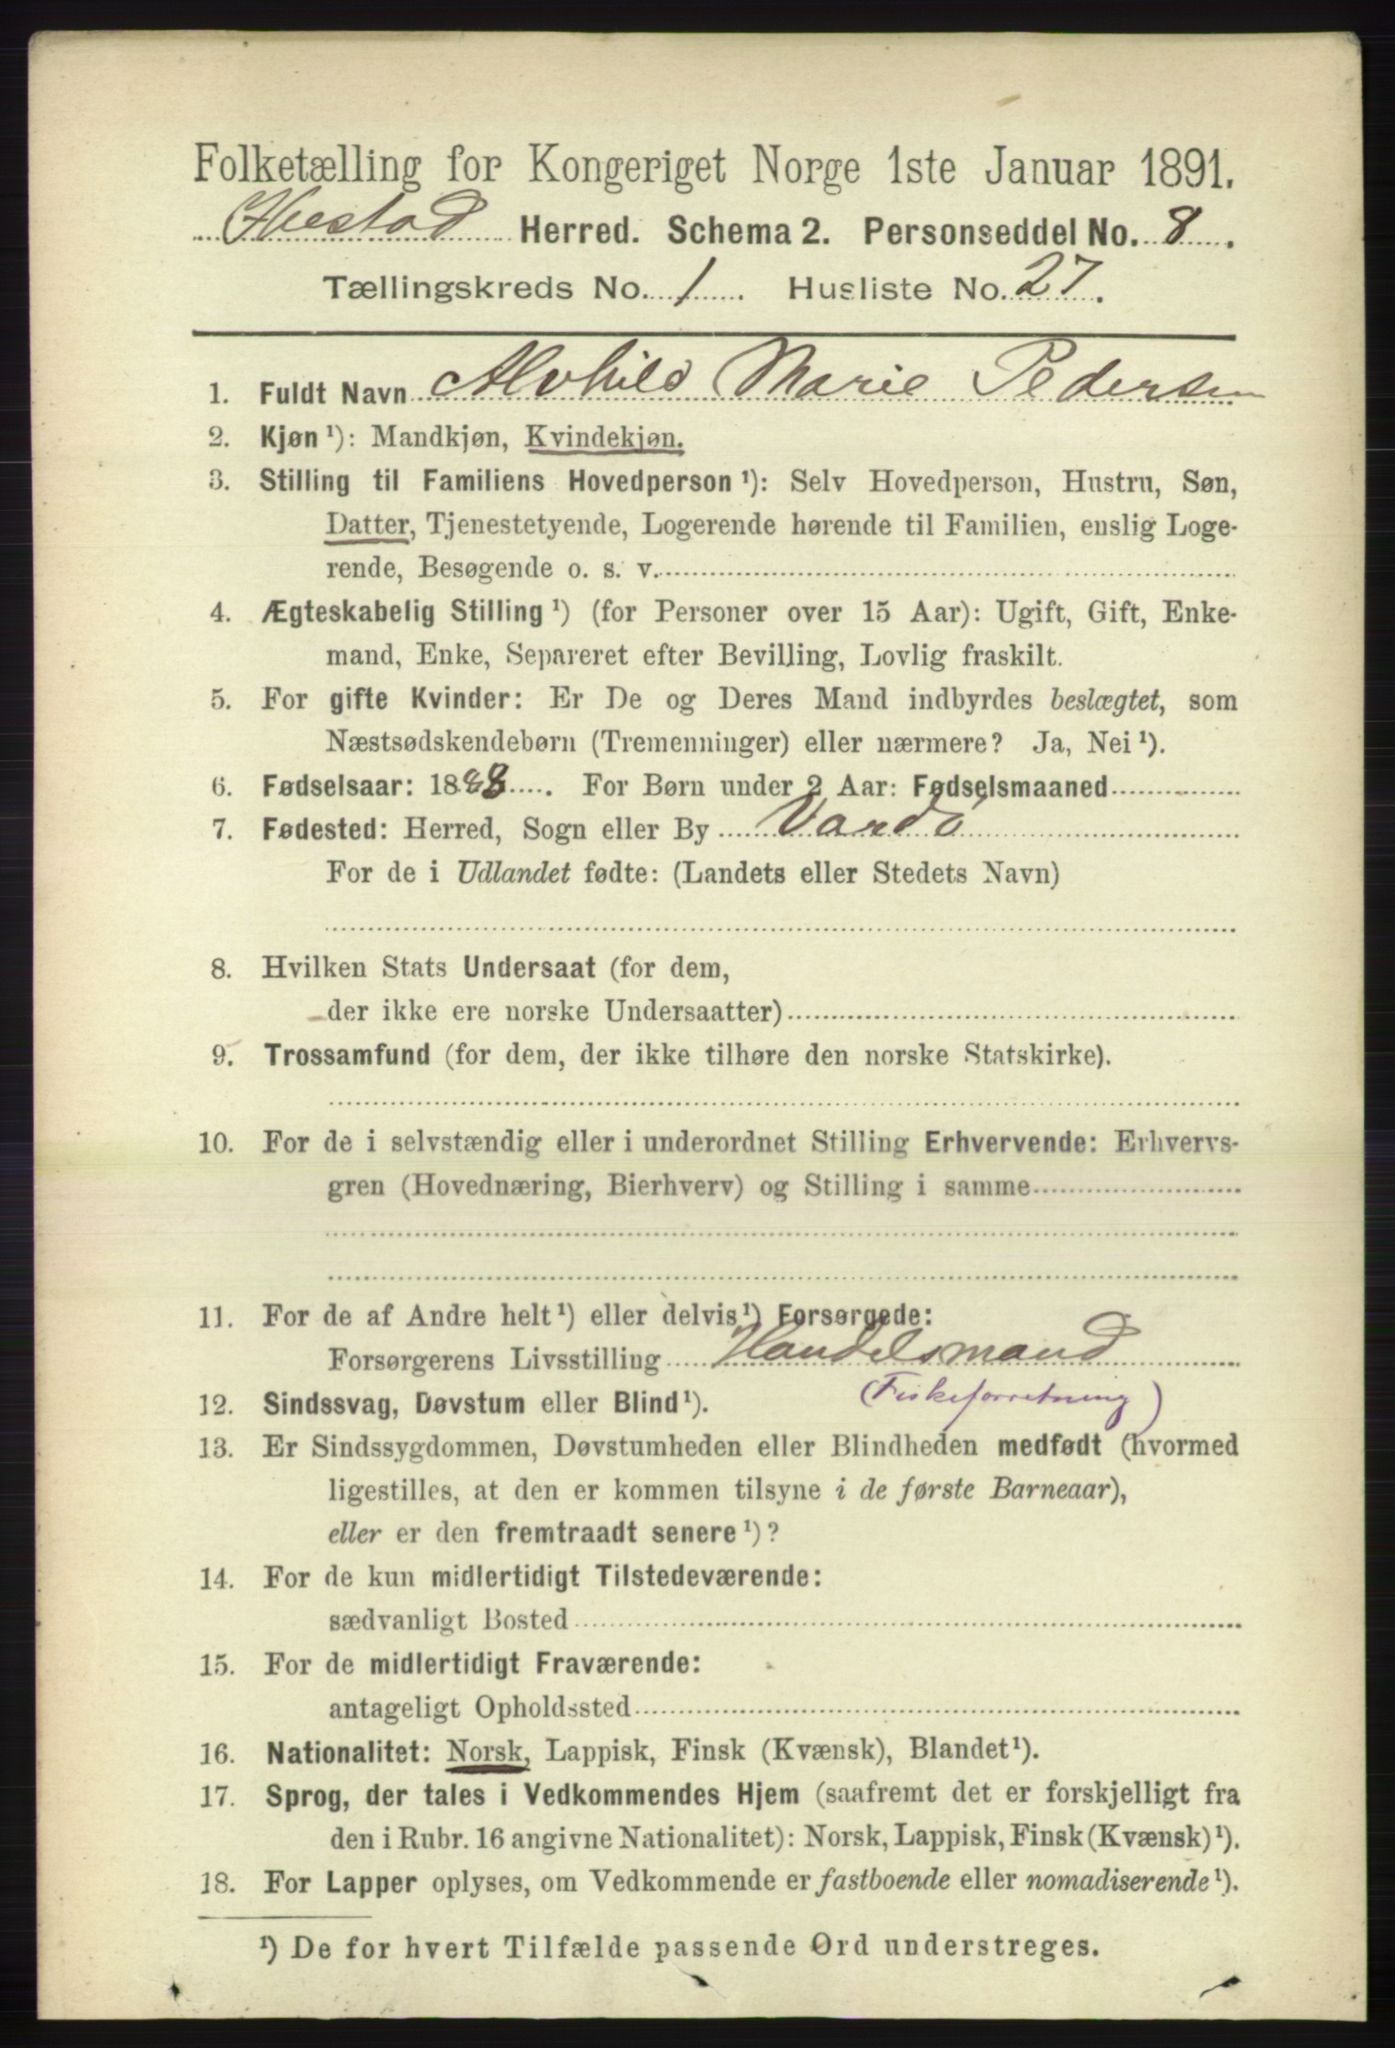 Folketælling for Kongeriget Norge 1ste Januar 1891.
Herred. Schema 2. Personseddel No. 8.
Tællingskreds No. 1. Husliste No. 27.
1. Fuldt Navn Alvhild Marie Pedersen
2. Kjøn ¹): Mandkjøn, Kvindekjøn.
3. Stilling til Familiens Hovedperson ¹): Selv Hovedperson, Hustru, Søn,
Datter, Tjenestetyende, Logerende hørende til Familien, enslig Loge-
rende, Besøgende o. s. v.
4. Ægteskabelig Stilling ¹) (for Personer over 15 Aar): Ugift, Gift, Enke-
mand, Enke, Separeret efter Bevilling, Lovlig fraskilt.
5. For gifte Kvinder: Er De og Deres Mand indbyrdes beslægtet, som
Næstsødskendebørn (Tremenninger) eller nærmere? Ja, Nei ¹).
6. Fødselsaar: 1888. For Børn under 2 Aar: Fødselsmaaned
7. Fødested: Herred, Sogn eller By Vardö
For de i Udlandet fødte: (Landets eller Stedets Navn)
8. Hvilken Stats Undersaat (for dem,
der ikke ere norske Undersaatter)
9. Trossamfund (for dem, der ikke tilhøre den norske Statskirke).
10. For de i selvstændig eller i underordnet Stilling Erhvervende: Erhvervs-
gren (Hovednæring, Bierhverv) og Stilling i samme
11. For de af Andre helt ¹) eller delvis ¹) Forsørgede:
Forsørgerens Livsstilling Handelsmand
(Fiskeforretning)
12. Sindssvag, Døvstum eller Blind ¹).
13. Er Sindssygdommen, Døvstumheden eller Blindheden medfødt (hvormed
ligestilles, at den er kommen tilsyne i de første Barneaar),
eller er den fremtraadt senere ¹)?
14. For de kun midlertidigt Tilstedeværende:
sædvanligt Bosted
15. For de midlertidigt Fraværende:
antageligt Opholdssted
16. Nationalitet: Norsk, Lappisk, Finsk (Kvænsk), Blandet ¹).
17. Sprog, der tales i Vedkommendes Hjem (saafremt det er forskjelligt fra
den i Rubr. 16 angivne Nationalitet): Norsk, Lappisk, Finsk (Kvænsk) ¹).
18. For Lapper oplyses, om Vedkommende er fastboende eller nomadiserende ¹).
¹) De for hvert Tilfælde passende Ord understreges.